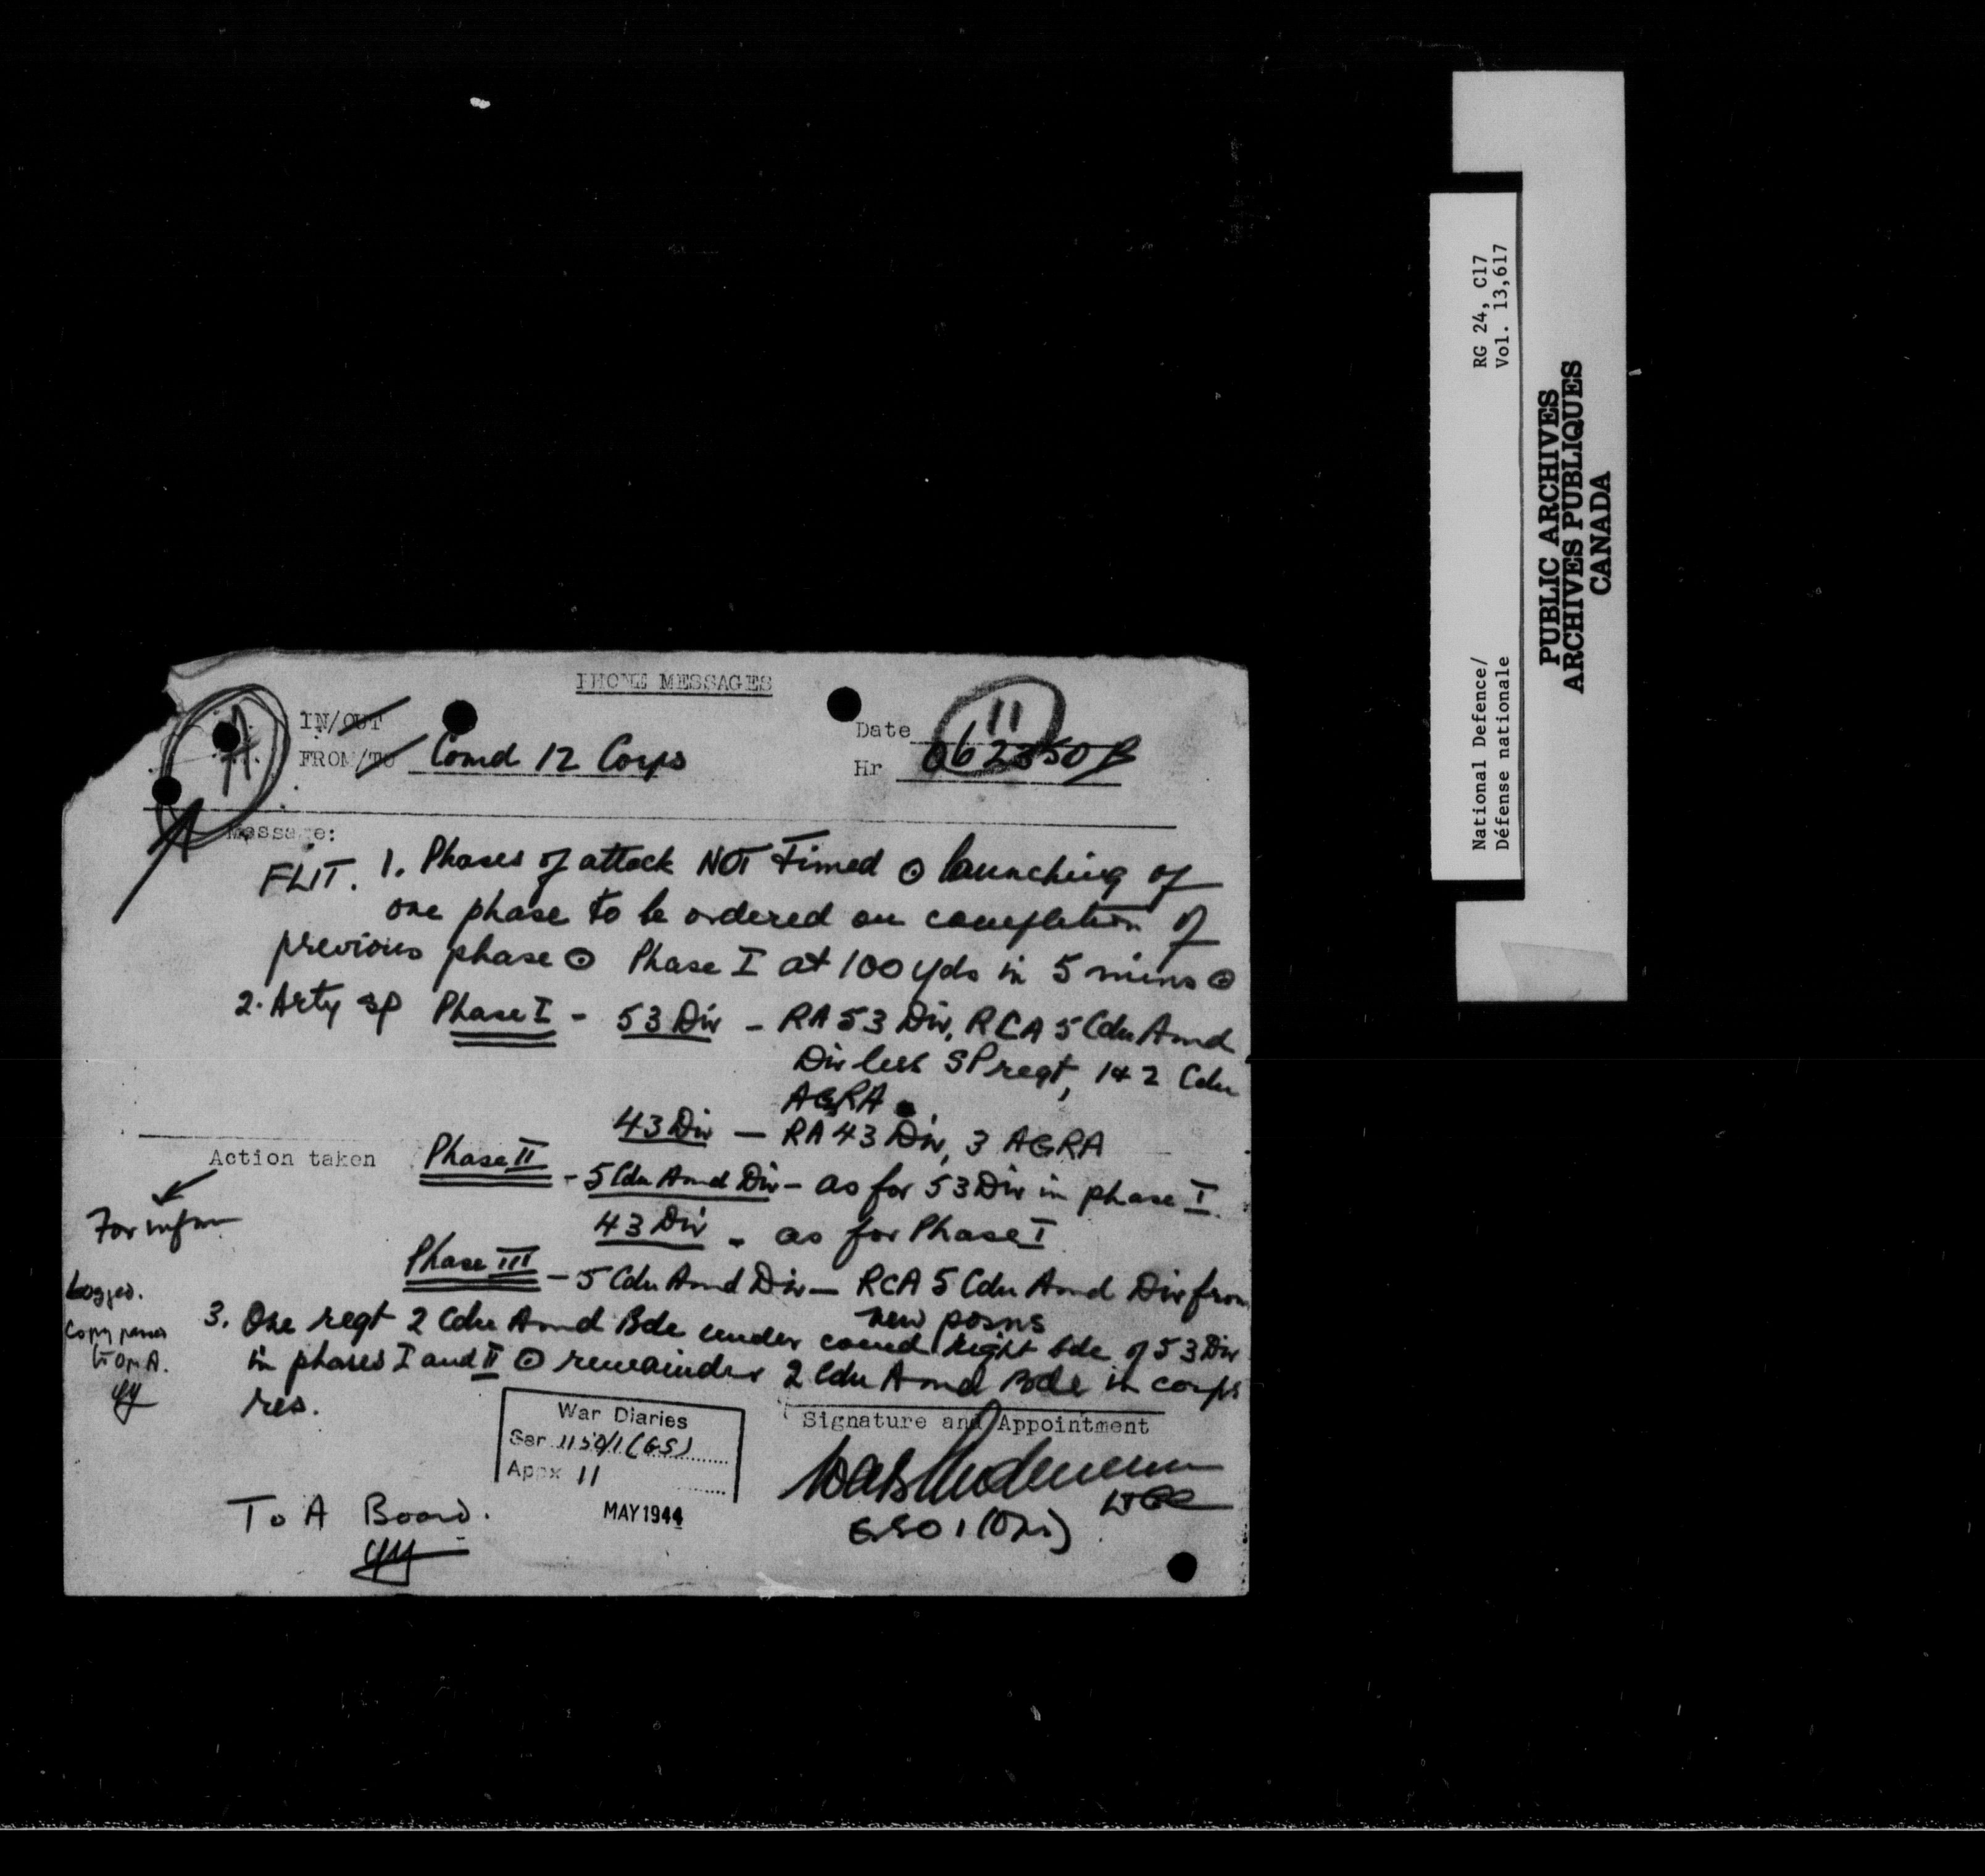 PHONE MESSAGES
11
IN/OUT
Date
FROM/TO Comd 12 Corps
Hr 062350B
Message:
FLIT. 1. Phases of attack NOT timed ⊙ launching of
one phase to be ordered on completion of
previous phase ⊙ Phase I at 100 yds in 5 mins ⊙
2. Arty sp Phase I - 53 Div - RA 53 Div, RCA 5 Cdn Armd
Div less SP regt, 1 & 2 Cdn
AGRA.
43 Div - RA 43 Div, 3 AGRA
Action taken
Phase II - 5 Cdn Armd Div - as for 53 Div in phase I.
For infm
43 Div - as for Phase I
Phase III - 5 Cdn Armd Div - RCA 5 Cdn Armd Div from
new posns
Logged.
3. One regt 2 Cdn Armd Bde under comd right bde of 53 Div
Copy
in phases I and II ⊙ remainder 2 Cdn Armd Bde in corps
res.
War Diaries
Ser 1150/1 (GS)
Appx 11
MAY 1944
Signature and Appointment
GSO 1 (Ops)
To A Board.
RG 24, C17
Vol. 13,617
National Defence/
Défense nationale
PUBLIC ARCHIVES
ARCHIVES PUBLIQUES
CANADA